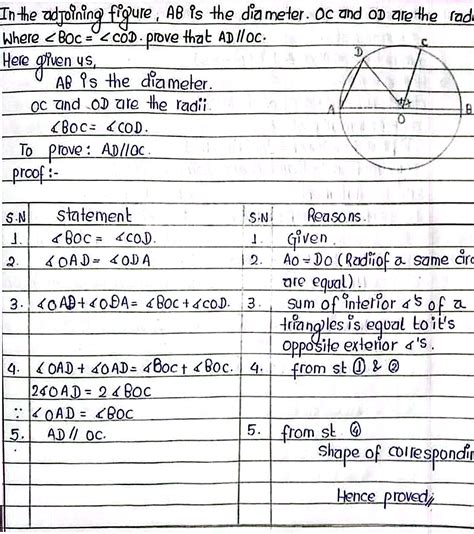 In the adjoining figure, AB is the diameter. OC and OD are the radi
Where ∠BOC = ∠COD. prove that AD//OC.
Here given us,
AB is the diameter.
OC and OD are the radii.
∠BOC = ∠COD.
To prove: AD//OC.
proof:-
D
C
A
O
B
S.N Statement S.N Reasons.
1. ∠BOC = ∠COD. 1. Given.
2. ∠OAD = ∠ODA 2. AO = DO (Radii of a same circ
are equal).
3. ∠OAD + ∠ODA = ∠BOC + ∠COD. 3. sum of interior ∠'s of a
triangles is equal to it's
opposite exterior ∠'s.
4. ∠OAD + ∠OAD = ∠BOC + ∠BOC. 4. from st ① & ②
2∠OAD = 2∠BOC
∵ ∠OAD = ∠BOC
5. AD // OC. 5. from st. ④
Shape of correspondin
Hence proved//